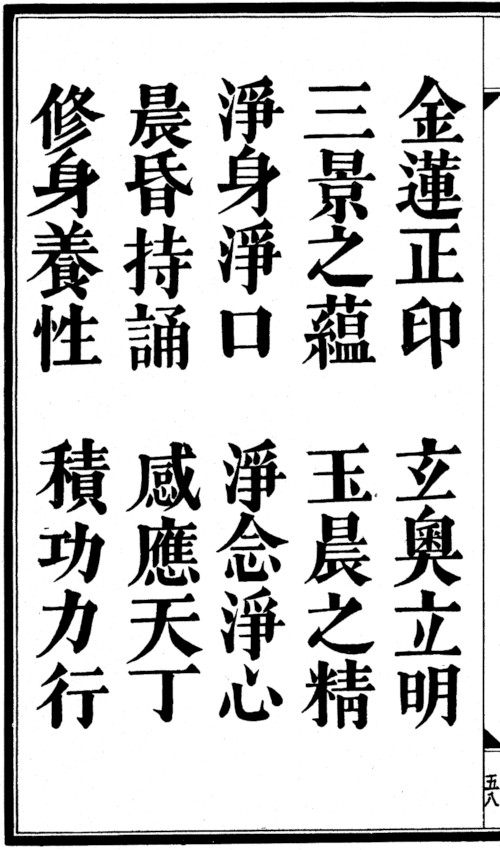 金蓮正印　玄奧立明
三景之蘊　玉晨之精
淨身淨口　淨念淨心
晨昏持誦　感應天丁
修身養性　積功力行
五八